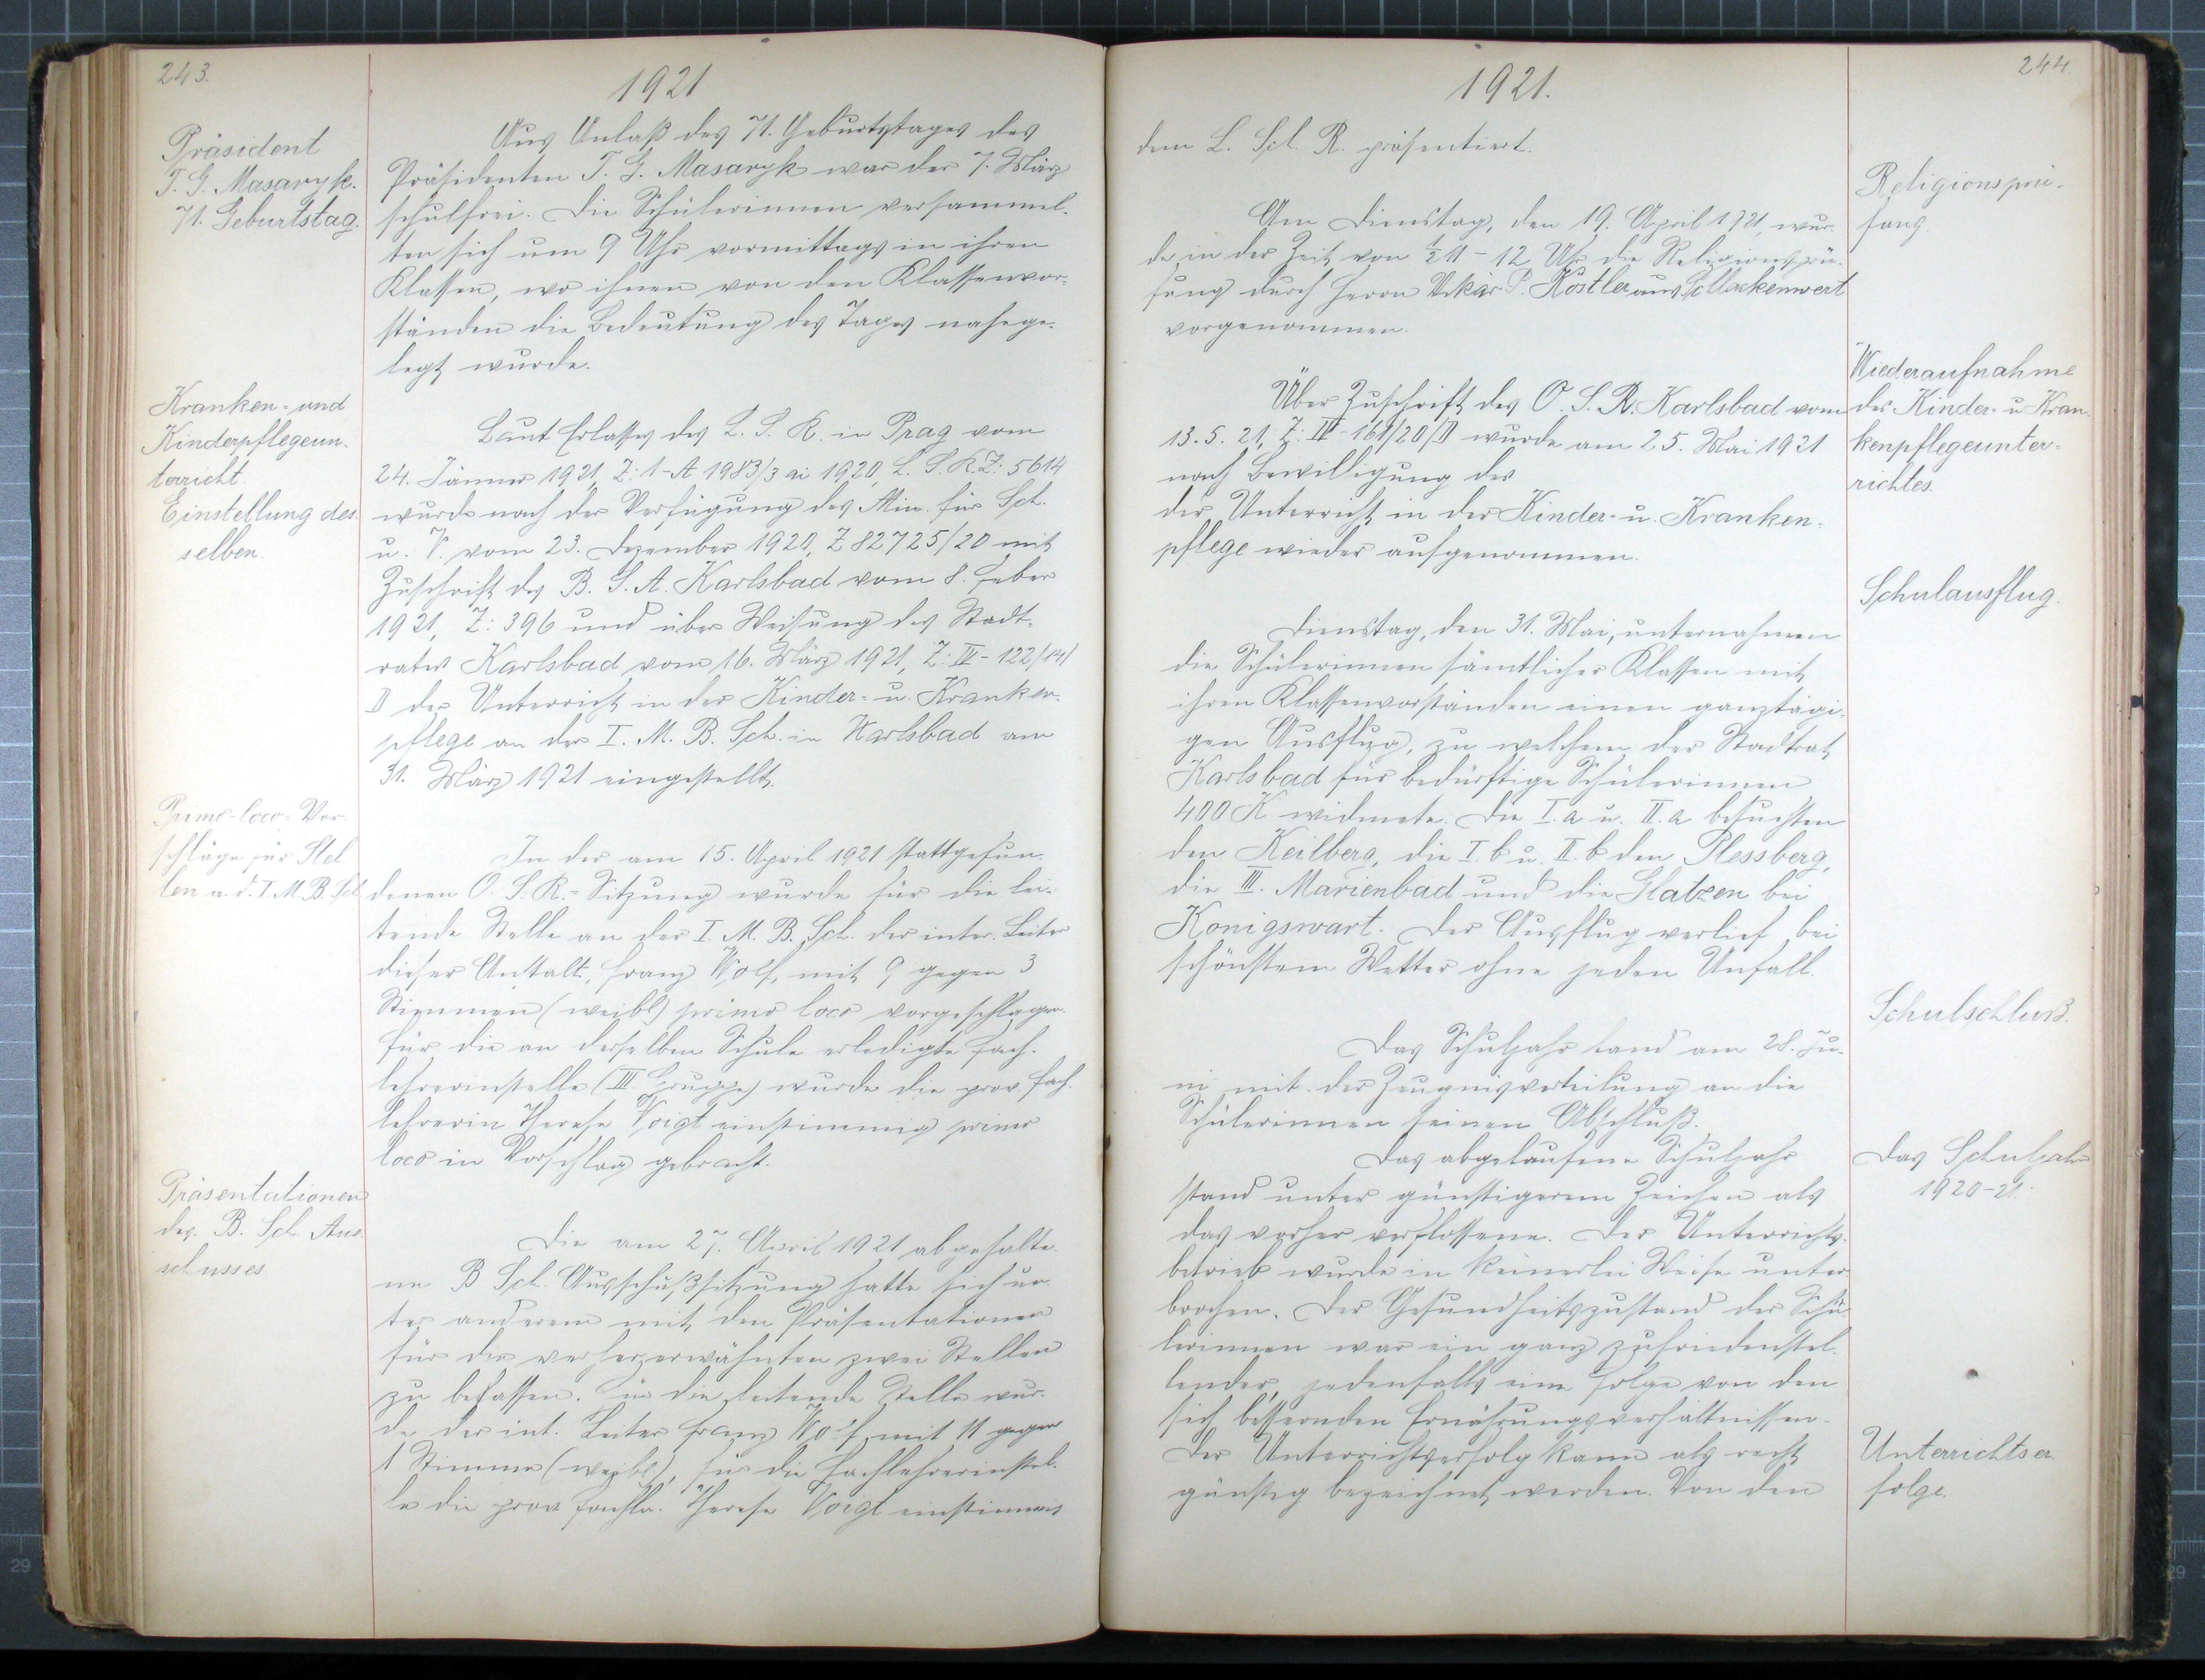 243.
1921
Präsident
T. G. Masaryk.
71. Geburtstag.
Aus Anlaß des 71. Geburtstages des
Präsidenten T. G. Masaryk war der 7. März
schulfrei. Die Schülerinnen versammel-
ten sich um 9 Uhr vormittags in ihren
Klassen, wo ihnen von den Klassenvor-
ständen die Bedeutung des Tages nahege-
legt wurde.
Kranken- und
Kinderpflegeun-
terricht.
Einstellung des-
selben.
Laut Erlasses des L. S. R. in Prag vom
24. Jänner 1921, Z: 1-A 1983/3 ai 1920, L. S. R. Z: 5614
wurde nach der Verfügung des Min. für Sch.
u. V. vom 23. Dezember 1920, Z 82725/20 mit
Zuschrift des B. S. A. Karlsbad vom 8. Feber
1921, Z: 396 und über Weisung des Stadt-
rates Karlsbad vom 16. März 1921, Z: IV-122/14/
II der Unterricht in der Kinder- u. Kranken-
pflege an der I. M. B. Sch. in Karlsbad am
31. März 1921 eingestellt.
Primo-loco-Vor-
schläge für Stel-
len a. d. I. M. B. Sch.
In der am 15. April 1921 stattgefun-
denen O. S. R.-Sitzung wurde für die lei-
tende Stelle an der I. M. B. Sch. der inter. Leiter
dieser Anstalt, Franz Wolf, mit 9 gegen 3
Stimmen (weibl) primo loco vorgeschlagen.
Für die an derselben Schule erledigte Fach-
lehrerinstelle (III Gruppe) wurde die prov. Fach-
lehrerin Therese Voigt einstimmig primo
loco in Vorschlag gebracht.
Präsentationen
des B. Sch. Aus-
schusses
Die am 27. April 1921 abgehalte-
ne B Sch. Ausschußsitzung hatte sich un-
ter anderem mit den Präsentationen
für die vorher erwähnten zwei Stellen
zu befassen. Für die leitende Stelle wur-
de der int. Leiter Franz Wolf mit 11 gegen
1 Stimme (weibl), für die Fachlehrerinstel-
le die prov. Fachln. Therese Voigt einstimmig
244.
1921.
dem L. Sch. R. präsentiert.
Religionsprü-
fung.
Am Dienstag, den 19. April 1921, wur-
de, in der Zeit von ½11-12 Uhr die Religionsprü-
fung durch Herrn Vikär P. Köstler aus Schlackenwert
vorgenommen.
Wiederaufnahme
des Kinder- u Kran-
kenpflegeunter-
richtes.
Über Zuschrift des O. S. R. Karlsbad vom
13. 5. 21, Z: IV-161/20/II wurde am 25. Mai 1921
nach Bewilligung des
der Unterricht in der Kinder- u. Kranken-
pflege wieder aufgenommen.
Schulausflug.
Dienstag, den 31. Mai, unternahmen
die Schülerinnen sämtlicher Klassen mit
ihren Klassenvorständen einen ganztägi-
gen Ausflug, zu welchem der Stadtrat
Karlsbad für bedürftige Schülerinnen
400 K widmete. Die I. a u. II. a besuchten
den Keilberg, die I. b u. II. b den Plessberg,
die III. Marienbad und die Glatzen bei
Königswart. Der Ausflug verlief bei
schönstem Wetter ohne jeden Unfall.
Schulschluß.
Das Schuljahr fand am 28. Ju-
ni mit der Zeugnisverteilung an die
Schülerinnen seinen Abschluß.
Das Schuljahr
1920-21.
Das abgelaufene Schuljahr
stand unter günstigerem Zeichen als
das vorher verflossene. Der Unterrichts-
betrieb wurde in keinerlei Weise unter-
brochen. Der Gesundheitszustand der Schü-
lerinnen war ein ganz zufriedenstel-
lender, jedenfalls eine Folge von den
sich bessernden Ernährungsverhältnissen.
Unterrichtser-
folge.
Der Unterrichtserfolg kann als recht
günstig bezeichnet werden. Von den
29
29